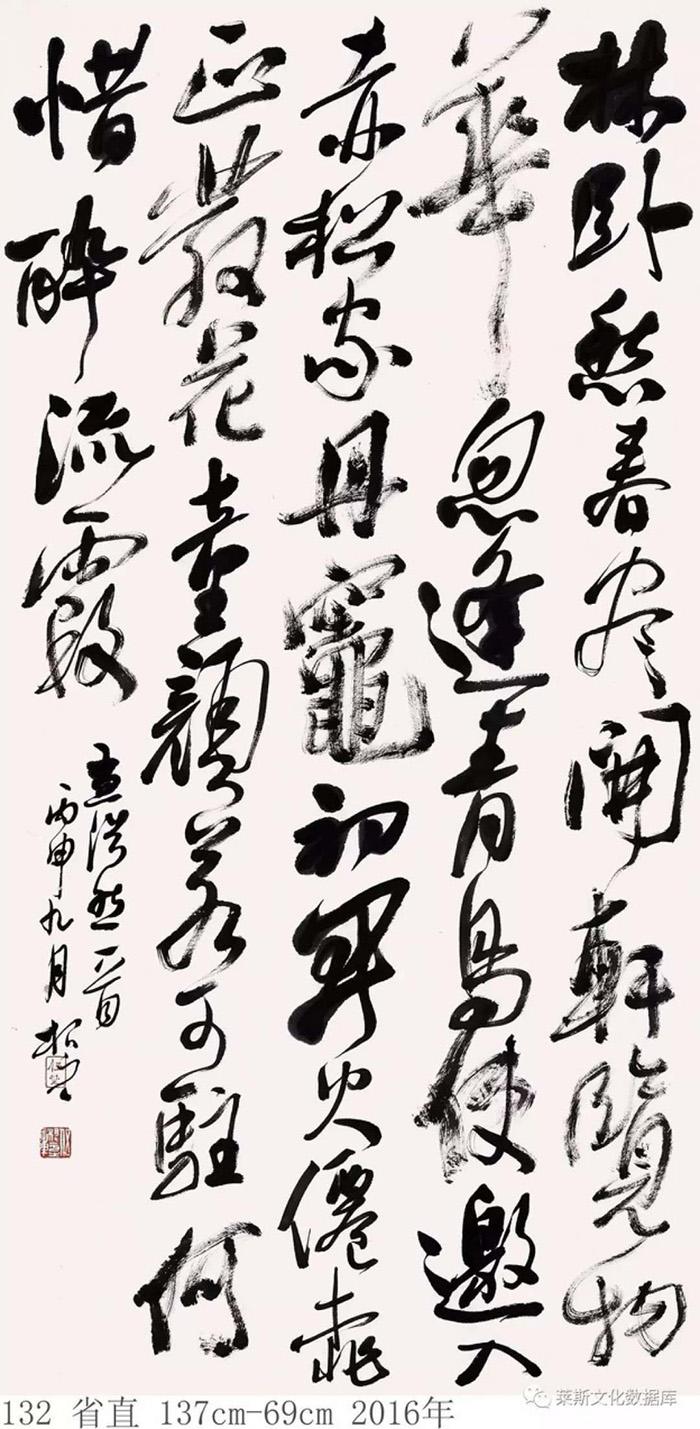 林卧愁春尽開軒覽物
華忽逢青鳥使邀入
赤松家丹竈初開火僊桃
正發花童顏若可駐何
惜醉流霞
孟浩然一首
丙申九月 松
132 省直 137cm-69cm 2016年
莱斯文化数据库